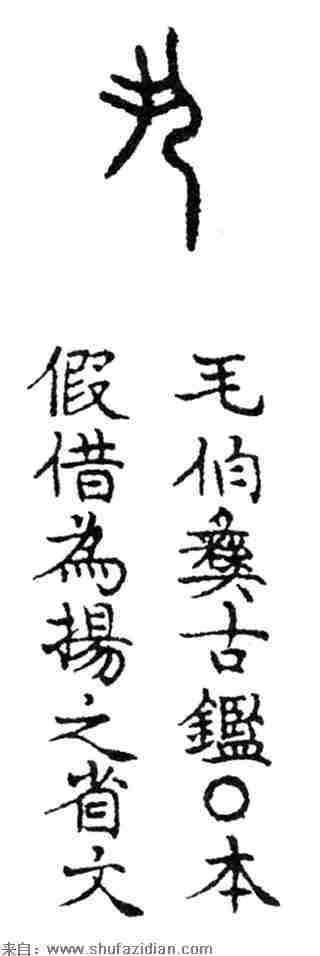 毛伯彝古鑑〇本
假借為揚之省文
来自：www.shufazidian.com